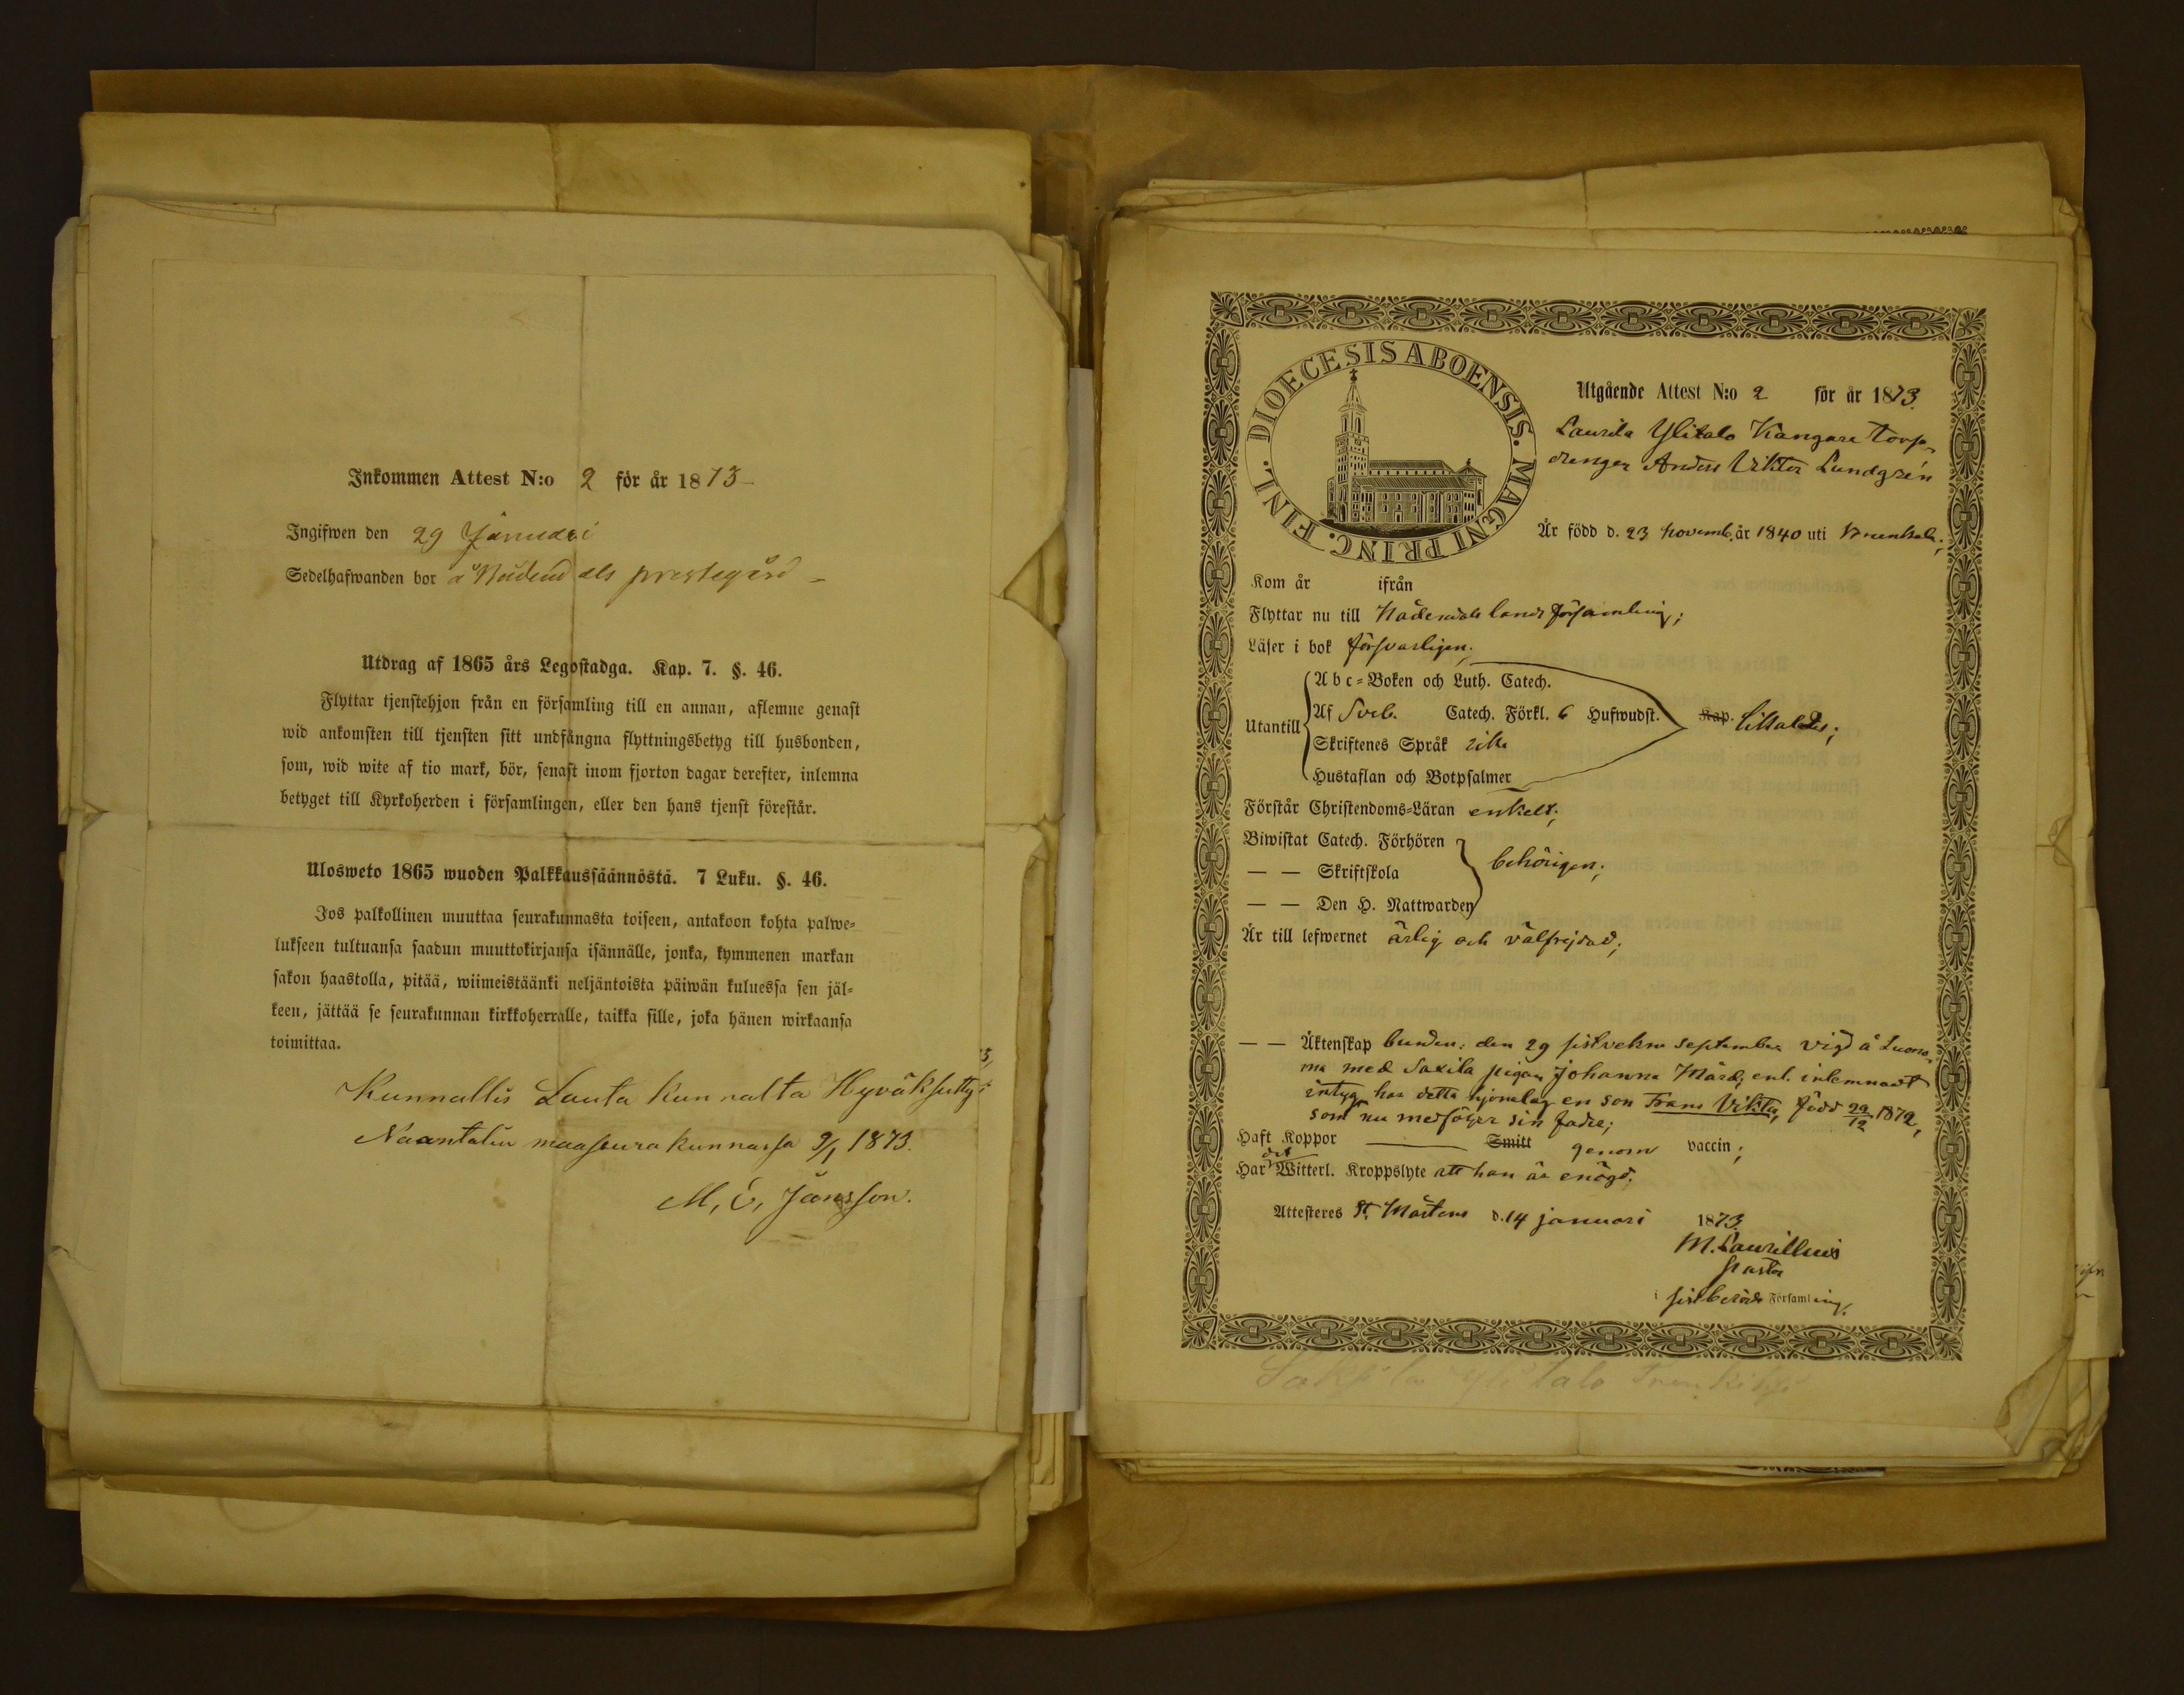 Inkommen Attest N:o 2 för år 1873
Ingifwen den 29 Januari
Sedelhafwanden bor å Nådendals prestegård
Utdrag af 1865 års Legostadga. Kap. 7. §. 46.
Flyttar tjenstehjon från en församling till en annan, aflemne genast
wid ankomsten till tjensten sitt undfångna flyttningsbetyg till husbonden,
som, wid wite af tio mark, bör, senast inom fjorton dagar derefter, inlemna
betyget till Kyrkoherden i församlingen, eller den hans tjenst förestår.
Ulosweto 1865 wuoden Palkkaussäännöstä. 7 Luku. §. 46.
Jos palkollinen muuttaa seurakunnasta toiseen, antakoon kohta palwe-
lukseen tultuansa saadun muuttokirjansa isännälle, jonka, kymmenen markan
sakon haastolla, pitää, wiimeistäänki neljäntoista päiwän kuluessa sen jäl-
keen, jättää se seurakunnan kirkkoherralle, taikka sille, joka hänen wirkaansa
toimittaa.
Kunnallis Lauta kunnalta Hyväksytty
Naantalin maaseurakunnassa 9/1 1873.
M. E. Jansson.
DIOECESIS ABOENSIS. MAGNI PRINC. FINL.
Utgående Attest N:o 2 för år 1873.
Laurila Ylitalo Kangare torp-
drengen Anders Viktor Lundgrén
Är född d. 23 novemb. år 1840 uti
Kom år ifrån
Flyttar nu till Nådendals lands församling;
Läser i bok försvarligen;
Utantill
Abc-Boken och Luth. Catech.
Af Sveb. Catech. Förkl. 6 Hufwudst. Kap.
Skriftenes Språk
Hustaflan och Botpsalmer
Förstår Christendoms-Läran enkelt;
Biwistat Catech. Förhören
— — Skriftskola behörigen;
— — Den H. Nattwarden
Är till lefwernet ärlig och välfrejdad;
— — Äktenskap bunden: den 29 sistvekne september vigd å Luono-
ma med Saxila pigan Johanna Mård; enl. inlemnadt
intyg har detta hjonelag en son Frans Viktor, född 29/12 1872,
som nu medföljer sin fader;
Haft Koppor — Smitt genom vaccin;
Har det Witterl. Kroppslyte att han är enögd.
Attesteres St. Mårtens d. 14 januari 1873.
M. Laurellius
Pastor
i sistberörde Församling.
Ylitalo